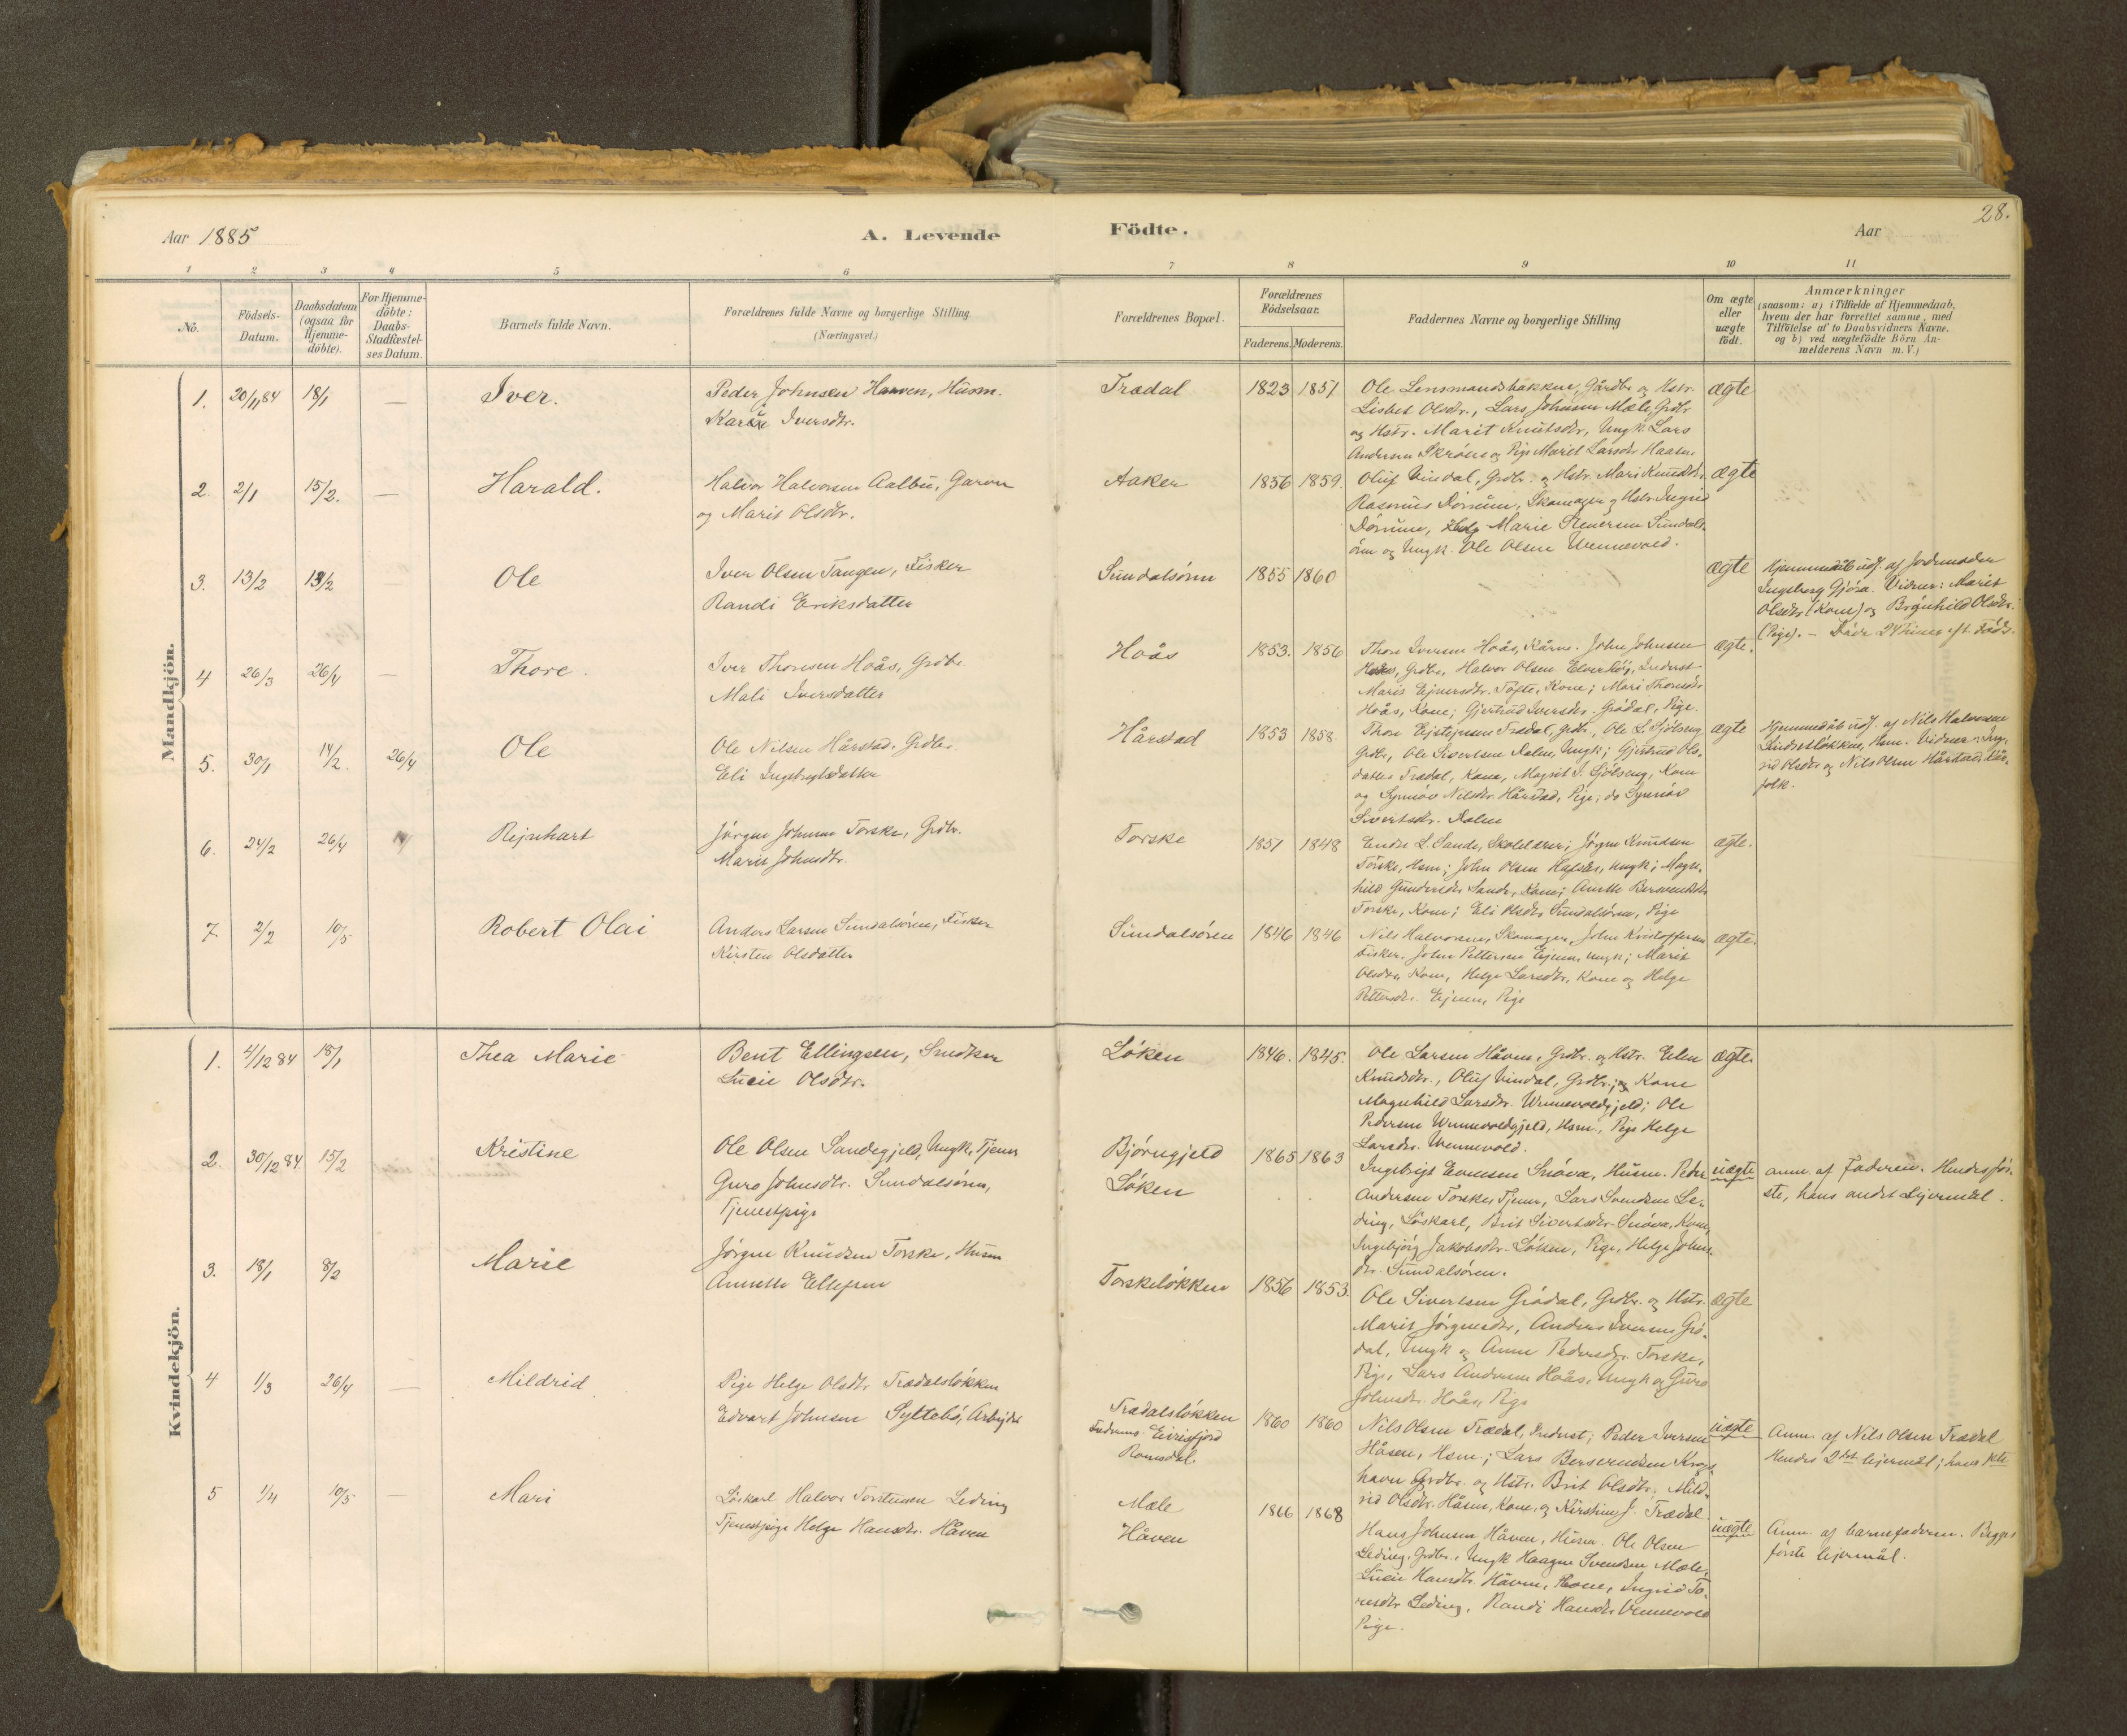 28.
Aar 1885
A. Levende
Födte.
Aar
1 2 3 4 5 6 7 8 9 10 11
No.
Födsels-
Datum.
Daabsdatum
(ogsaa for
Hjemme-
döbte).
For Hjemme-
döbte:
Daabs-
Stadfæstel-
ses Datum.
Barnets fulde Navn.
Forældrenes fulde Navne og borgerlige Stilling.
(Næringsvei.)
Forældrenes Bopæl.
Forældrenes
Födselsaar.
Faderens. Moderens.
Faddernes Navne og borgerlige Stilling
Om ægte
eller
uægte
födt.
Anmærkninger
(saasom: a) i Tilfælde af Hjemmedaab,
hvem der har forrettet samme, med
Tilföielse af to Daabsvidners Navne.
og b) ved uægtefödte Börn An-
melderens Navn m. V.)
Mandkjön.
1. 20/11 84 18/1 — Iver.
Peder Johnsen Haaven, Husm.
Iversdtr.
Trædal 1823 1851
Ole Lensmandsbakken, Gårdbr. og Hstr.
Lisbet Olsdtr., Lars Johnsen Mæle, Grdbr
og Hstr. Marit Knutsdtr, Ungk. Lars
Andersen og Pige Marit Larsdtr
ægte
2. 2/1 15/2. — Harald.
Halvor Halvorsen Aalbu, Garver
og Marit Olsdtr.
Aaker 1856 1859.
Oluf Vindal, Grdbr. og Hstr. Mari Knudsdtr.
Rasmus Dörum, Skomager og Hstr Ingrid
Dörum, Marie Stenersen Sundals-
ören og Ungk. Ole Olsen Wennevold.
ægte
3. 13/2 13/2 — Ole
Iver Olsen Tangen, Fisker
Randi Eriksdatter
Sundalsören 1855 1860
ægte
Hjemmedåb udf. af Jordmoder
Ingeborg Gjöra. Vidner: Marit
Olsdtr (Kone) og Brynhild Olsdtr.
(Pige). — Döde 24 Timer eft. Föds.
4 26/3 26/4 — Thore.
Iver Thoresen Hoås, Grdbr
Mali Iversdatter
Hoås 1853. 1856
Thore Iversen Hoås, Kårm. John Johnsen
Grdbr, Halvor Olsen Inderst
Marit Ejnersdtr. Tofte, Kone; Mari Thoresdtr
Hoås, Kone; Gjertrud Iversdtr. Grödal, Pige.
ægte.
5. 30/1 14/2. 26/4 Ole
Ole Nilsen Hårstad, Grdbr.
Eli Ingebrigtsdatter
Hårstad 1853 1858
Thore Ejstejnsen Trædal, Grdbr., Ole L. Sjölseng
Grdbr, Ole Sivertsen Kalen, Ungk; Gjertrud Ols-
datter Trædal, Kone, Magrit J. Sjölseng, Kone
og Synnöv Nilsdtr. Hårstad, Pige; do Synnöv
Sivertsdtr. Kalen
ægte
Hjemmedåb udf. af Nils Halvorsen
Hsm. Vidner: Ing-
rid Olsdtr og Nils Olsen Hårstad, Kår-
folk.
6. 24/2 26/4 Rejnhart
Jörgen Johnsen Torske, Grdbr.
Marit Johnsdtr.
Torske 1851 1848
Endre L. Sande, Skolelærer; Jörgen Knudsen
Torske, Hsm; John Olsen Hafsås, Ungk; Magn-
hild Gundersdtr Sande, Kone; Anette
Torske, Kone; Eli Olsdtr Sundalsören, Pige
ægte.
7. 2/2 10/5 Robert Olai
Anders Larsen Sundalsören, Fisker
Kirsten Olsdatter
Sundalsören 1846 1846
Nils Halvorsen, Skomager, John Kristoffersen
Fisker, John Pettersen Ejsen, Ungk; Marit
Olsdtr, Kone, Helge Larsdtr, Kone og Helge
Pettersdtr. Pige
ægte.
Kvindekjön.
1. 4/12 84 18/1 Thea Marie
Bent Ellingsen, Snedker
Lucie Olsdtr.
Löken 1846. 1845.
Ole Larsen Håven, Grdbr. og Hstr. Elen
Knudsdtr., Oluf Vindal, Grdbr.; og Kone
Magnhild Larsdtr. Wennevoldgjeld; Ole
Pedersen Wennevoldgjeld, Hsm., Pige Helge
Larsdtr. Wennevold.
ægte.
2. 30/12 84 15/2 Kristine
Ole Olsen Sandegjeld, Ungk, Tjener
Guro Johnsdtr. Sundalsören,
Tjenestpige
Björngjeld
Löken
1865 1863
Ingebrigt Evensen Snöva, Husm. Peder
Andersen Torske, Tjener, Lars Svendsen Le-
ding, Löskarl, Brit Sivertsdtr Snöva, Kone,
Ingebjörg Jakobsdtr. Löken, Pige, Helge Johns-
dtr. Sundalsören.
uægte
anm. af Faderen. Hendes för-
ste, hans andet Lejermål.
3. 18/1 8/2 Marie
Jörgen Knudsen Torske, Husm
Annette Ellefsen
Torskelökken 1856 1853.
Ole Sivertsen Grödal, Grdbr. og Hstr.
Marit Jörgensdtr, Anders Iversen Grö-
dal, Ungk og Anne Pedersdtr Torske,
Pige, Lars Andersen Hoås, Ungk og Guro
Johnsdtr. Hoås, Pige
ægte
4 1/3 26/4 — Mildrid
Pige Helge Olsdtr Trædalslökken
Edvart Johnsen Syltebö, Arbejder
Trædalslökken
Faderens Eirisfjord
Romsdal.
1860 1860
Nils Olsen Trædal, Inderst; Peder Iversen
Håsen, Hsm.; Lars Berserudsen Krogs-
haven Grdbr. og Hstr. Brit Olsdtr, Mild-
rid Olsdtr. Håsen, Kone, og Kirstine J. Trædal
uægte
Anm. af Nils Olsen Trædal
Hendes 2det lejermål; hans 1ste
5 1/4 10/5 — Mari
Löskarl Halvor Torstensen Leding
Tjenestpige Helge Hansdtr. Håven
Mæle
Håven
1866 1868
Hans Johnsen Håven, Husm. Ole Olsen
Leding, Grdbr., Ungk Haagen Svendsen Mæle,
Lucie Hansdtr. Håven, Kone, Ingrid To-
resdtr Leding, Randi Hansdtr Wennevold
Pige.
uægte
Anm. af barnefaderen. Begges
förste lejermål.